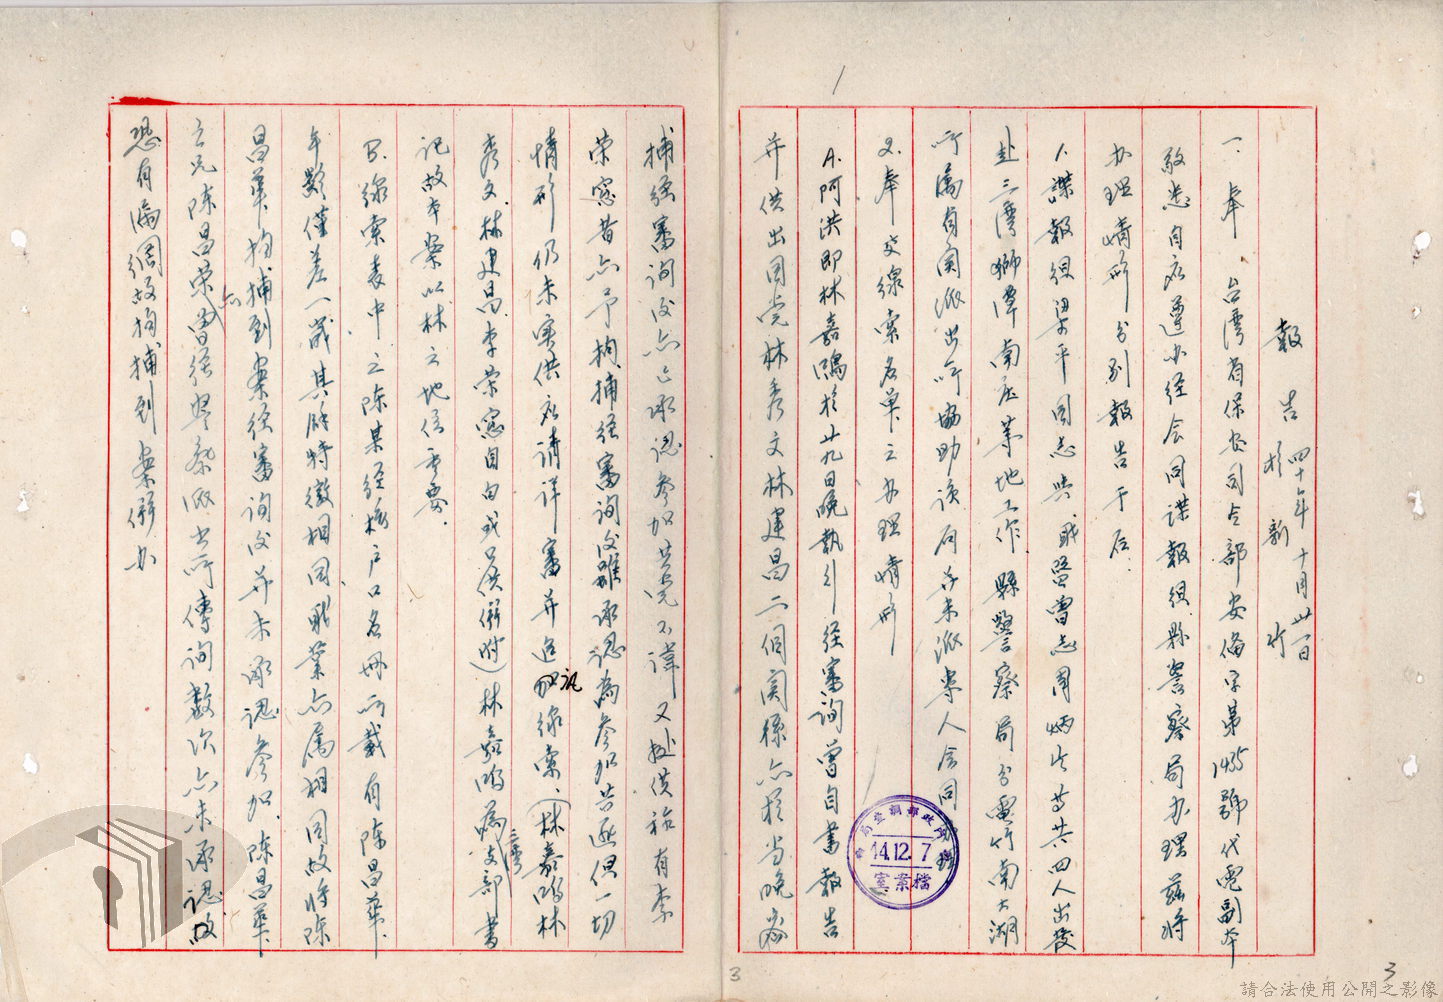 報告 四十年十月卅一日
於新竹
一、奉 台灣省保安司令部安偹字第1435號代電副本
敬悉自應遵办経会同諜報組縣警察局办理茲將
办理情形分别報告于后：
1.諜報組梁平同志與職盟曾志周炳等共四人出發
赴三灣獅潭南庄等地工作縣警察局分電竹南大湖
所屬有関派出所協助该局并未派専人会同办理
2.奉交線索名單之办理情形
A.阿洪即林嘉鴻於廿九日晚執引経審詢曽自書報告
并供出同党林秀文林建昌二個関係亦於当晚密
捕経審詢後亦已承認参加共党不諱又挺供詒有李
荣宽昔亦予拘捕経審詢後雖承認為参加共匪但一切
情形仍未実供应請詳審并追訊線索、(林嘉鴻林
秀文、林建昌、李荣宽自白或口供併附)林嘉鴻為三灣支部書
記故本案以林之地位重要。
B.線索表中之陈某経核户口名册所載有陈昌華、
年齡僅差一歲其他特徵相同職業亦属相同故将陈
昌華拘捕到案経審詢後并未承認参加、陈昌華
之兄陈昌荣亦曽経該派出所傳詢数次亦未承認故
恐有漏網故拘捕到案併办
政部調查局
14.12.7
檔案室
3
3
請合法使用公開之影像